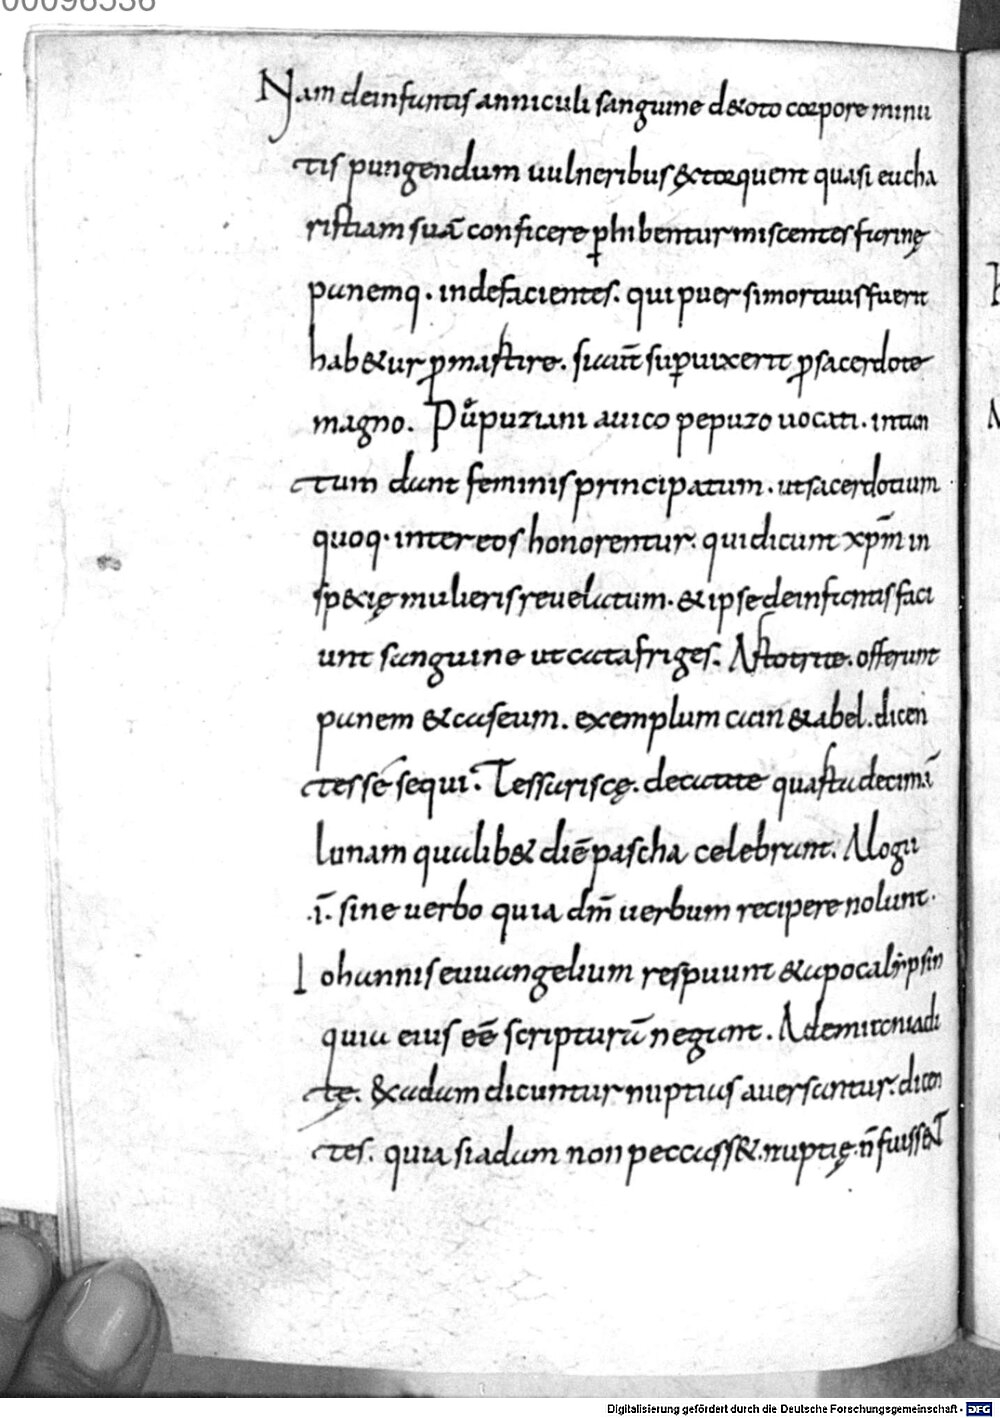 00096536
Nam deinfantis anniculi sanguine de&oto corpore minu
tis pungendum uulneribus &torquent quasi eucha
ristiam suā conficere p̱hibentur miscentes farinę
panemq. inde facientes. qui puer simortuus fuerit
hab&ur p̱ mastire. siaut̄ sup̱uixerit p̱ sacerdote
magno. Půpuziani auico pepuzo uocati. intan
tum dant feminis principatum. utsacerdotium
quoq. inter eos honorentur. qui dicunt xp̄m in
sp&ię mulieris reuelatum. &ipse deinfantis faci
unt sanguine ut catafriges. Astotritae. offerunt
panem &caseum. exemplum cain &abel. dicen
tes sē sequi. Tessarisce. decatite quasta decimā
lunam qualib& diē pascha celebrant. Alogii
.ī. sine uerbo quia dm̄ uerbum recipere nolunt.
Iohannis euuangelium respuunt &apocalipsin
quia eius eē scripturā negant. Ademitoniadi
tę. &adam dicuntur nuptias auersantur. dicen
tes. quia si adam non peccass&. nuptię n̄ fuiss&
Digitalisierung gefördert durch die Deutsche Forschungsgemeinschaft - DFG